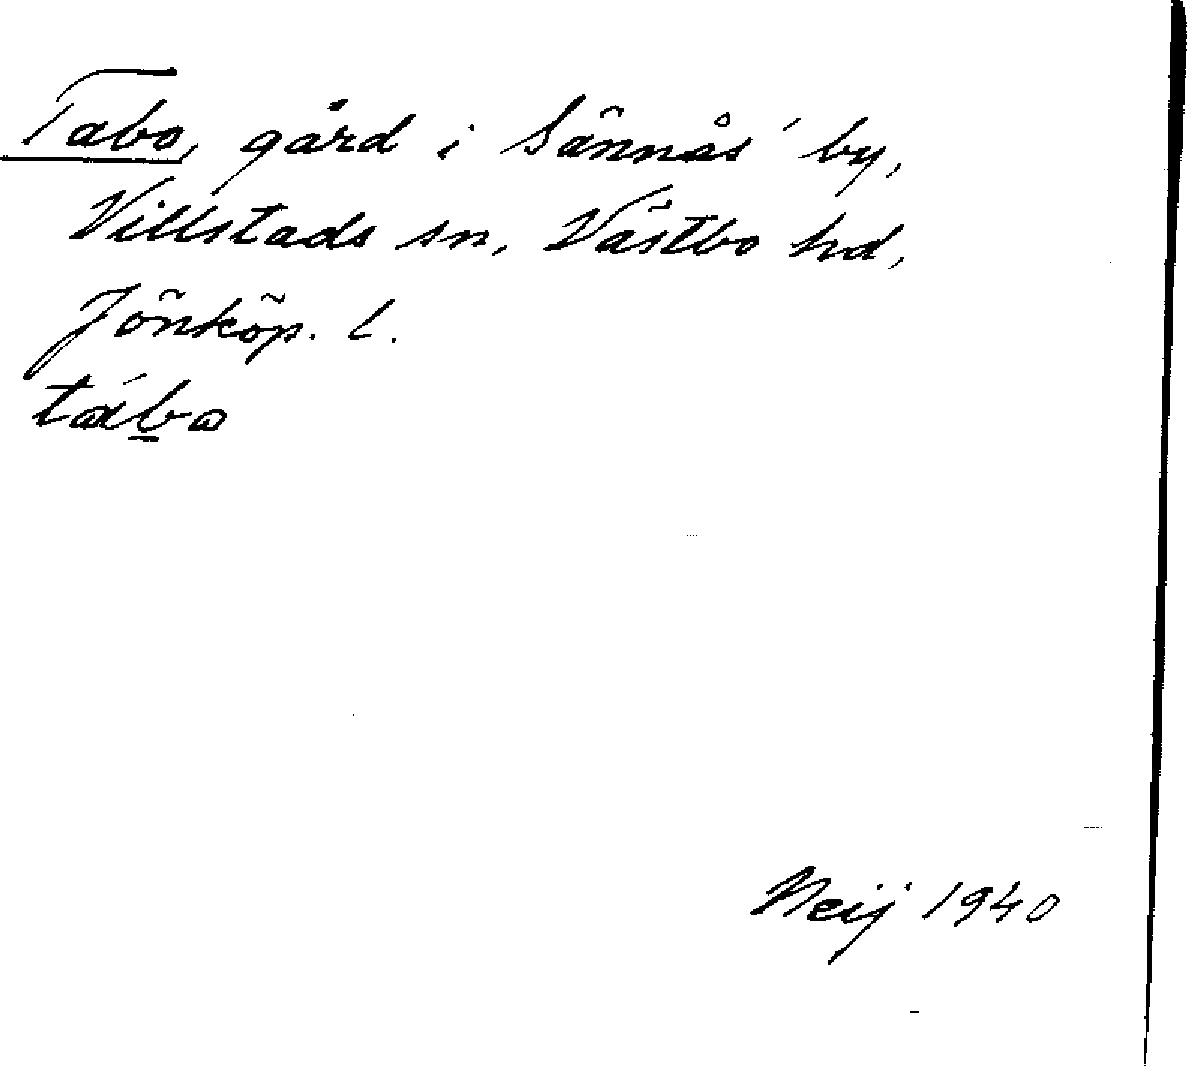 Tabo, gård i Sännås by,
Villstads sn, Västbo hd,
Jönköp. l.
tábo
Neij 1940